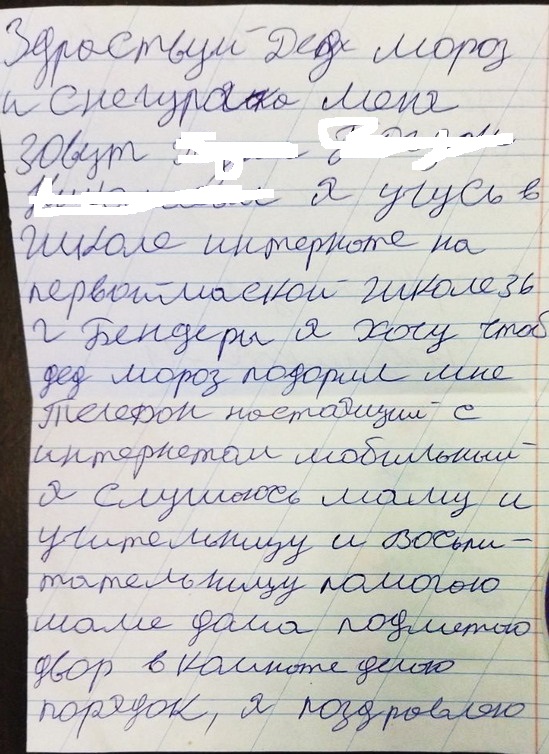 Здраствуй Дед мороз
и снегурачка меня
зовут
я учусь в
школе интернате на
первоймаской школе 36
г Бендеры я хочу чтоб
дед мороз подорил мне
телефон настаящий с
интернетом мобильный
я слушаюсь маму и
учительницу и воспи-
тательницу помогою
маме дома подметою
двор в комноте делою
порядок, я поздровляю